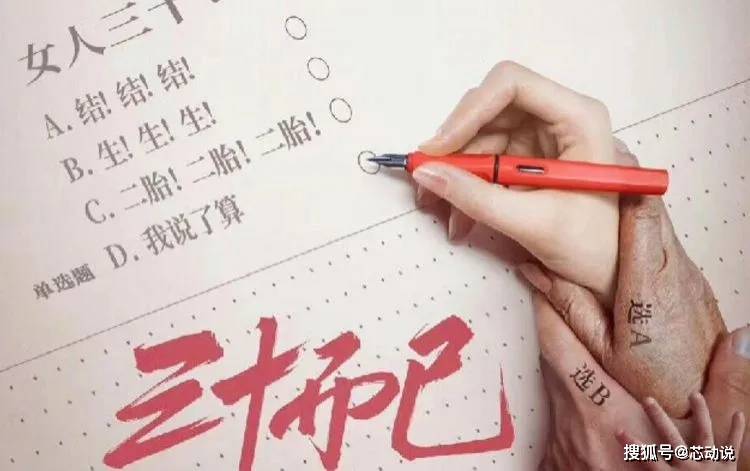 女人三十
A. 结! 结! 结!
B. 生! 生! 生!
C. 二胎! 二胎! 二胎!
D. 我说了算
单选题
三十而已
选A
选B
搜狐号@芯动说